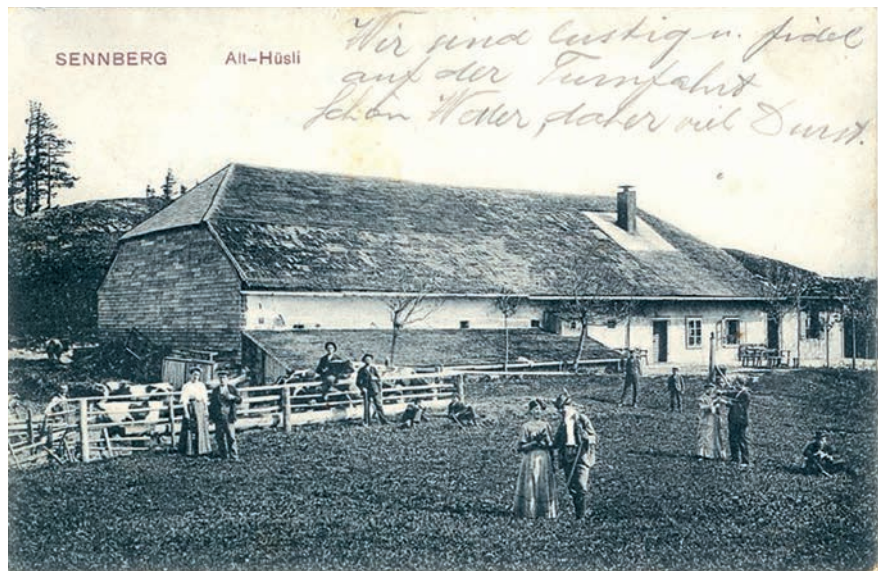 SENNBERG Alt-Hüsli
Wir sind lustig u. fidel
auf der Turnfahrt
Schön Wetter, daher viel Durst.